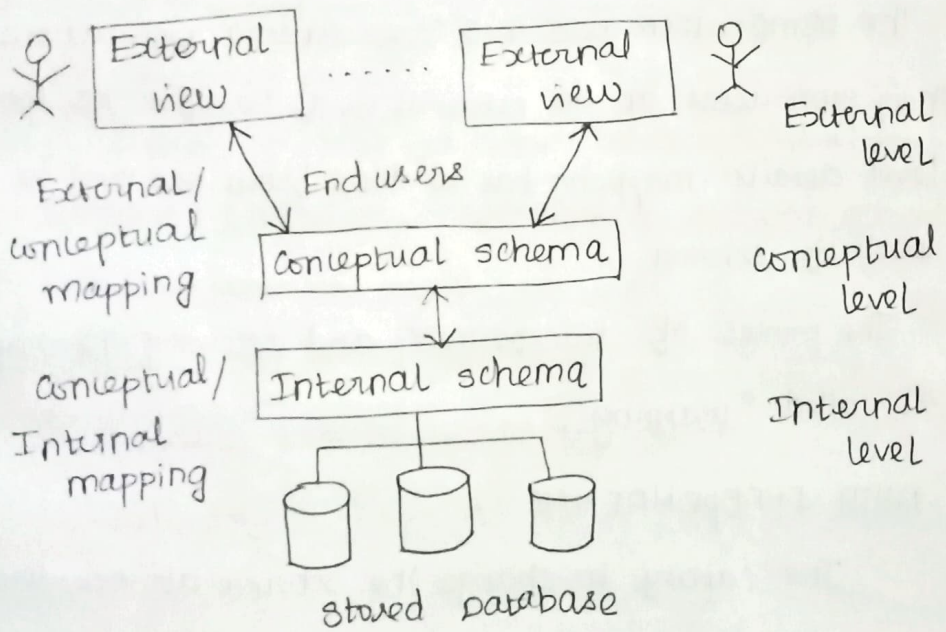 External
view
.............
External
view
External
level
External/
conceptual
mapping
End users
Conceptual schema
conceptual
level
Conceptual/
Internal
mapping
Internal schema
Internal
level
Stored Database